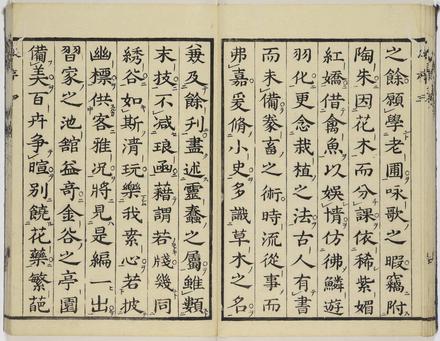 之餘願學老圃咏歌之暇竊附
陶朱因花木而分課依稀紫媚
紅嬌借禽魚以娯情仿彿鱗遊
羽化更念栽植之法古人有書
而未備豢畜之術時流從事而
弗嘉爰脩小史多識草木之名
兼及餘刋盡述靈蠢之屬雖類
末技不减琅函藉謂若牋幾同
綉谷如斯清玩樂我素心若披
幽標供客雅况將見是編一出
習家之池舘益竒金谷之亭園
備美百卉争暄別饒花藥繁葩